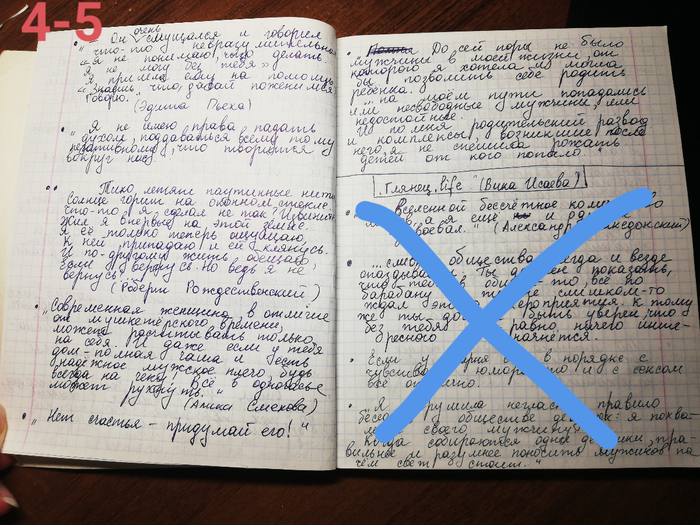 4-5
Он очень смущался и говорил
что-то невразумительное
„Я не понимаю, что делать.
Я не могу без тебя»
Я пришла ему на помощь
„Знаешь, что, давай поженимся
говорю."
(Эдита Пьеха)
• „Я не имею права падать
духом, поддаваться всему тому
негативному, что творится
вокруг нас"
Тихо летят паутинные нити
Солнце горит на оконном стекле.
Что-то я делал не так? Извините
Жил я впервые на этой Земле.
Я её только теперь ощущаю,
К ней припадаю и ей клянусь.
И по-другому жить обещаю,
Если вернусь. Но ведь я не
вернусь
(Роберт Рождественский)
• „Современная женщина, в отличие
от мушкетёрского времени,
может рассчитывать только
на себя. И даже если у тебя
дом-полная чаша и есть
надёжное мужское плечо, будь
всегда на чеку. Всё в одночасье
может рухнуть."
(Алика Смехова)
• „Нет счастья - придумай его!"
• До сей поры не было
мужчины в моей жизни, от
которого я хотела и могла
бы позволить себе родить
ребёнка.
...па моём пути попадались
или несвободные мужчины, или
недостойные.
И помня родительский развод
и комплексы, возникшие после
него, я не спешила рожать
детей от кого попало"
„Глянец.life" (Вика Исаева)
Вселенной бессчётное
а я ещё и
(Александр
общества всегда и везде
опаздывают. Ты показать,
что тебе в общем-то, всё по
барабану и ты не слишком-то
ждал этого мероприятия. К тому
же ты быть уверен, что
без тебя равно ничего инте-
ресного начнётся.
Если у в порядке с
чувством юмора и с сексом
всё
• „Я негласное правило
обществе
своего мужчину
Когда собираются одне пра-
вильнее и разумнее поносить мужиков на
чём свет стоит."